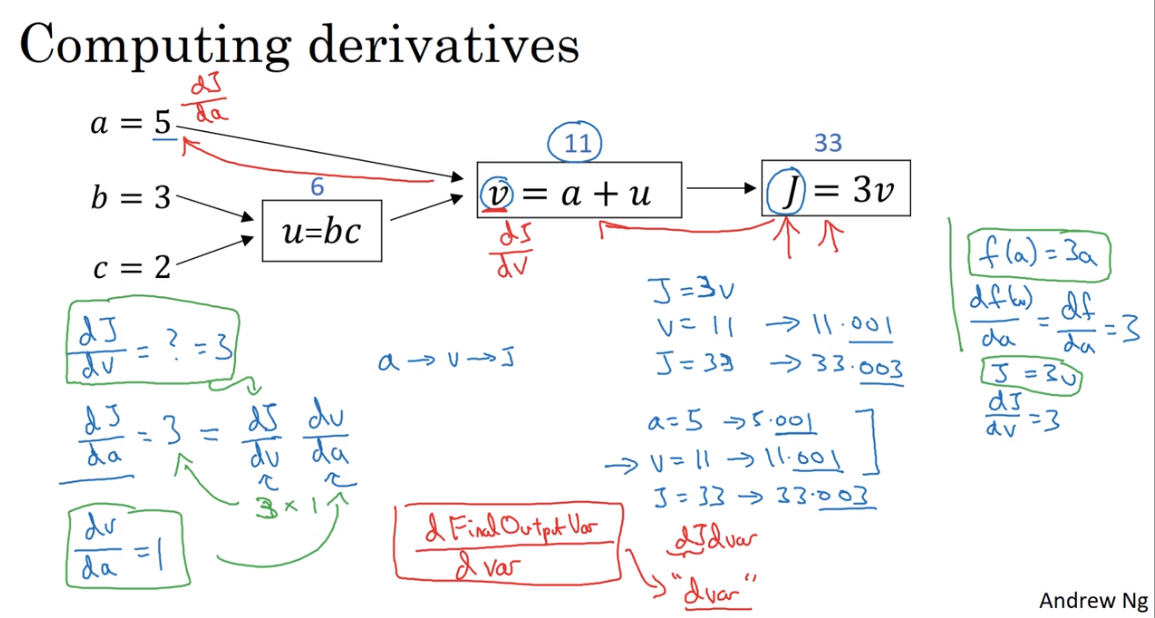 Computing derivatives
dJ/da
a = 5
b = 3
c = 2
6
u=bc
11
v = a + u
dJ/dv
33
J = 3v
dJ/dv = ? = 3
dJ/da = 3 = dJ/dv dv/da
3 × 1
dv/da = 1
a → v → J
J = 3v
v = 11 → 11.001
J = 33 → 33.003
a = 5 → 5.001
→ v = 11 → 11.001
J = 33 → 33.003
d FinalOutputVar / d var
dJdvar
"dvar"
f(a) = 3a
df(a)/da = df/da = 3
J = 3v
dJ/dv = 3
Andrew Ng